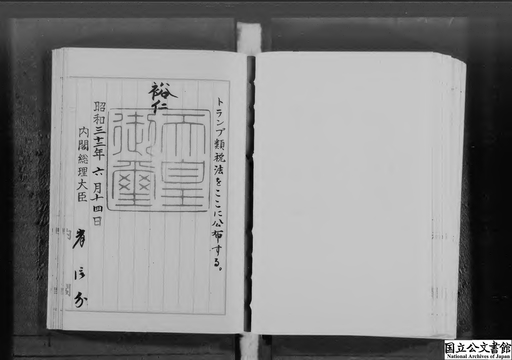 トランプ類税法をここに公布する。
裕仁
天皇
御璽
昭和三十二年六月十四日
内閣総理大臣
岸信介
国立公文書館
National Archives of Japan